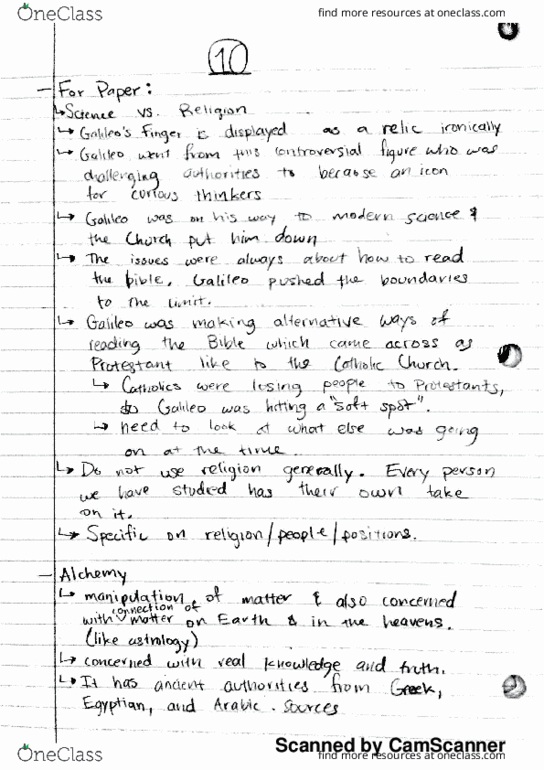 OneClass
find more resources at oneclass.com
10
- For Paper:
↳ Science vs. Religion
↳ Galileo's Finger is displayed as a relic ironically
↳ Galileo went from this controversial figure who was
challenging authorities to became an icon
for curious thinkers
↳ Galileo was on his way to modern science &
the Church put him down
↳ The issues were always about how to read
the bible. Galileo pushed the boundaries
to the limit.
↳ Galileo was making alternative ways of
reading the Bible which came across as
Protestant like to the Catholic Church.
↳ Catholics were losing people to Protestants,
Galileo was hitting a "soft spot".
↳ need to look at what else was going
on at the time.
↳ Do not use religion generally. Every person
we have studied has their own take
on it.
↳ Specific on religion/people/positions.
- Alchemy
↳ manipulation of matter & also concerned
with connection of matter on Earth & in the heavens.
(like astrology)
↳ concerned with real knowledge and truth.
↳ It has ancient authorities from Greek,
Egyptian, and Arabic. Sources
Scanned by CamScanner
OneClass
find more resources at oneclass.com